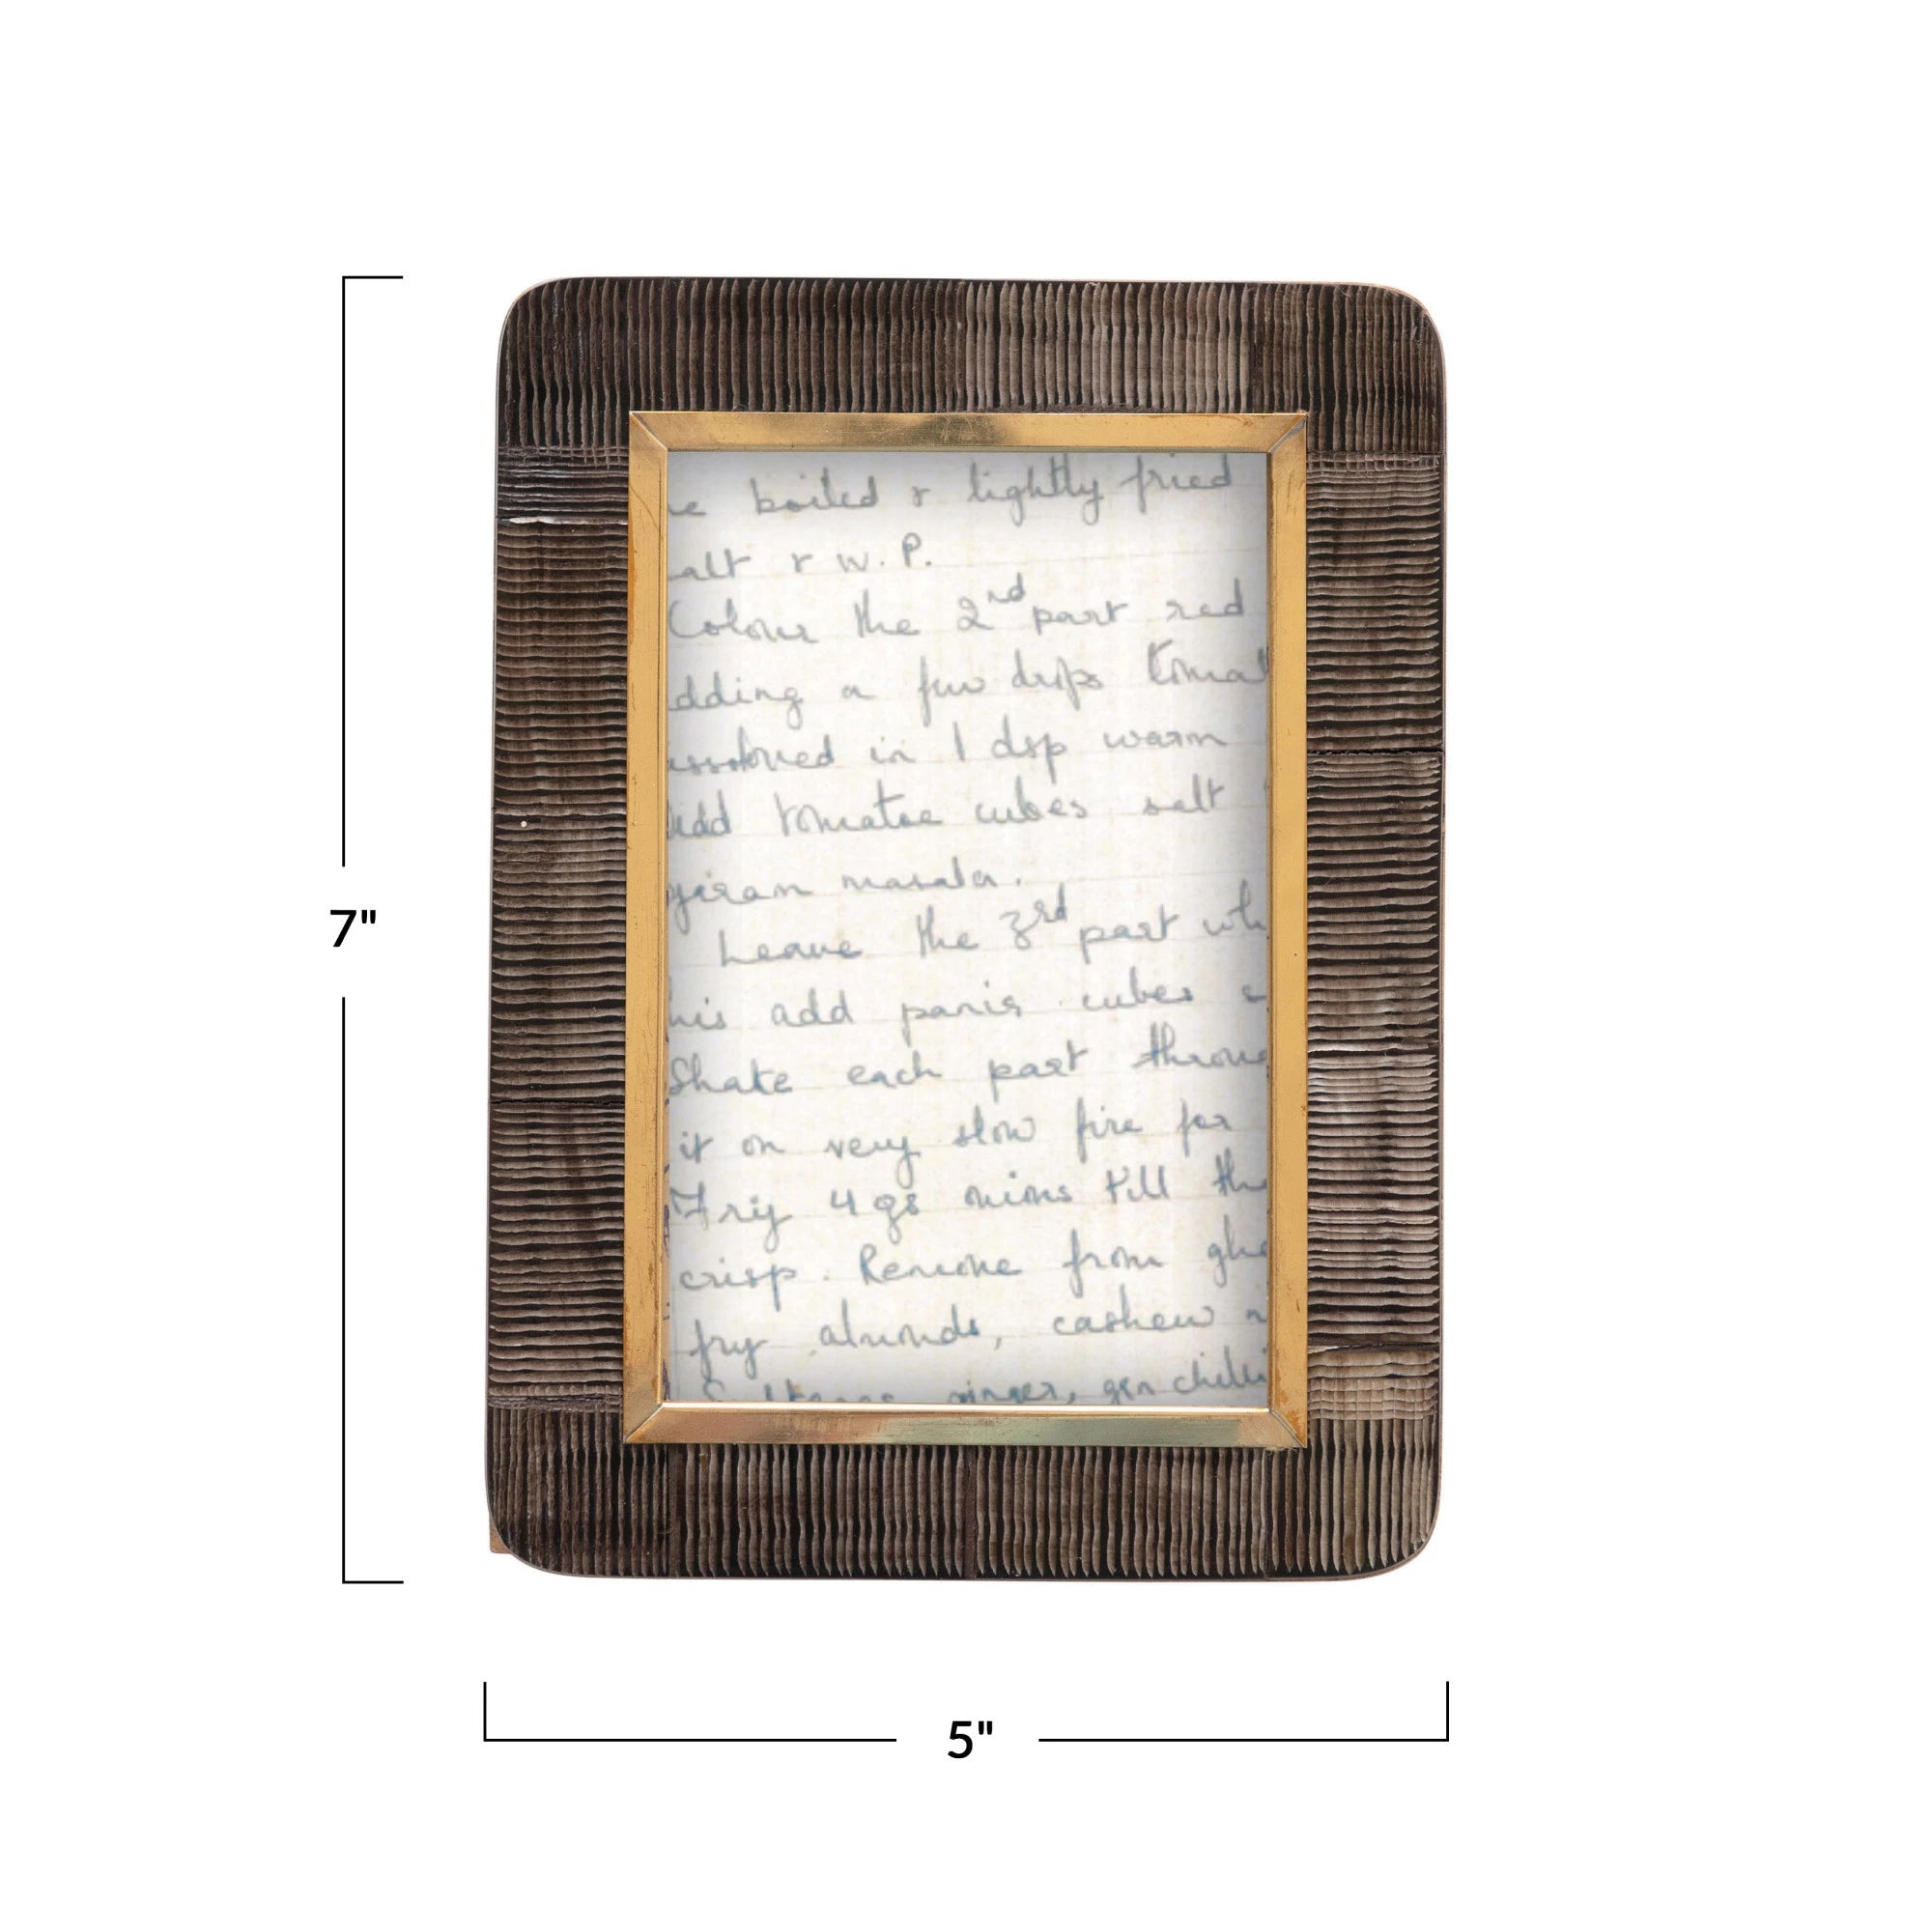 boiled & lightly fried
alt & W.P.
Colour the 2nd part red
dding a few drops tomat
in 1 dsp warm
Add tomatoe cubes salt
garam masala.
Leave the 3rd part wh
his add panir cubes
Shake each part throu
it on very slow fire for
Fry 4 gs onions till the
crisp. Remove from ghe
fry almonds, cashew n
ginger, grn chilli
7"
5"